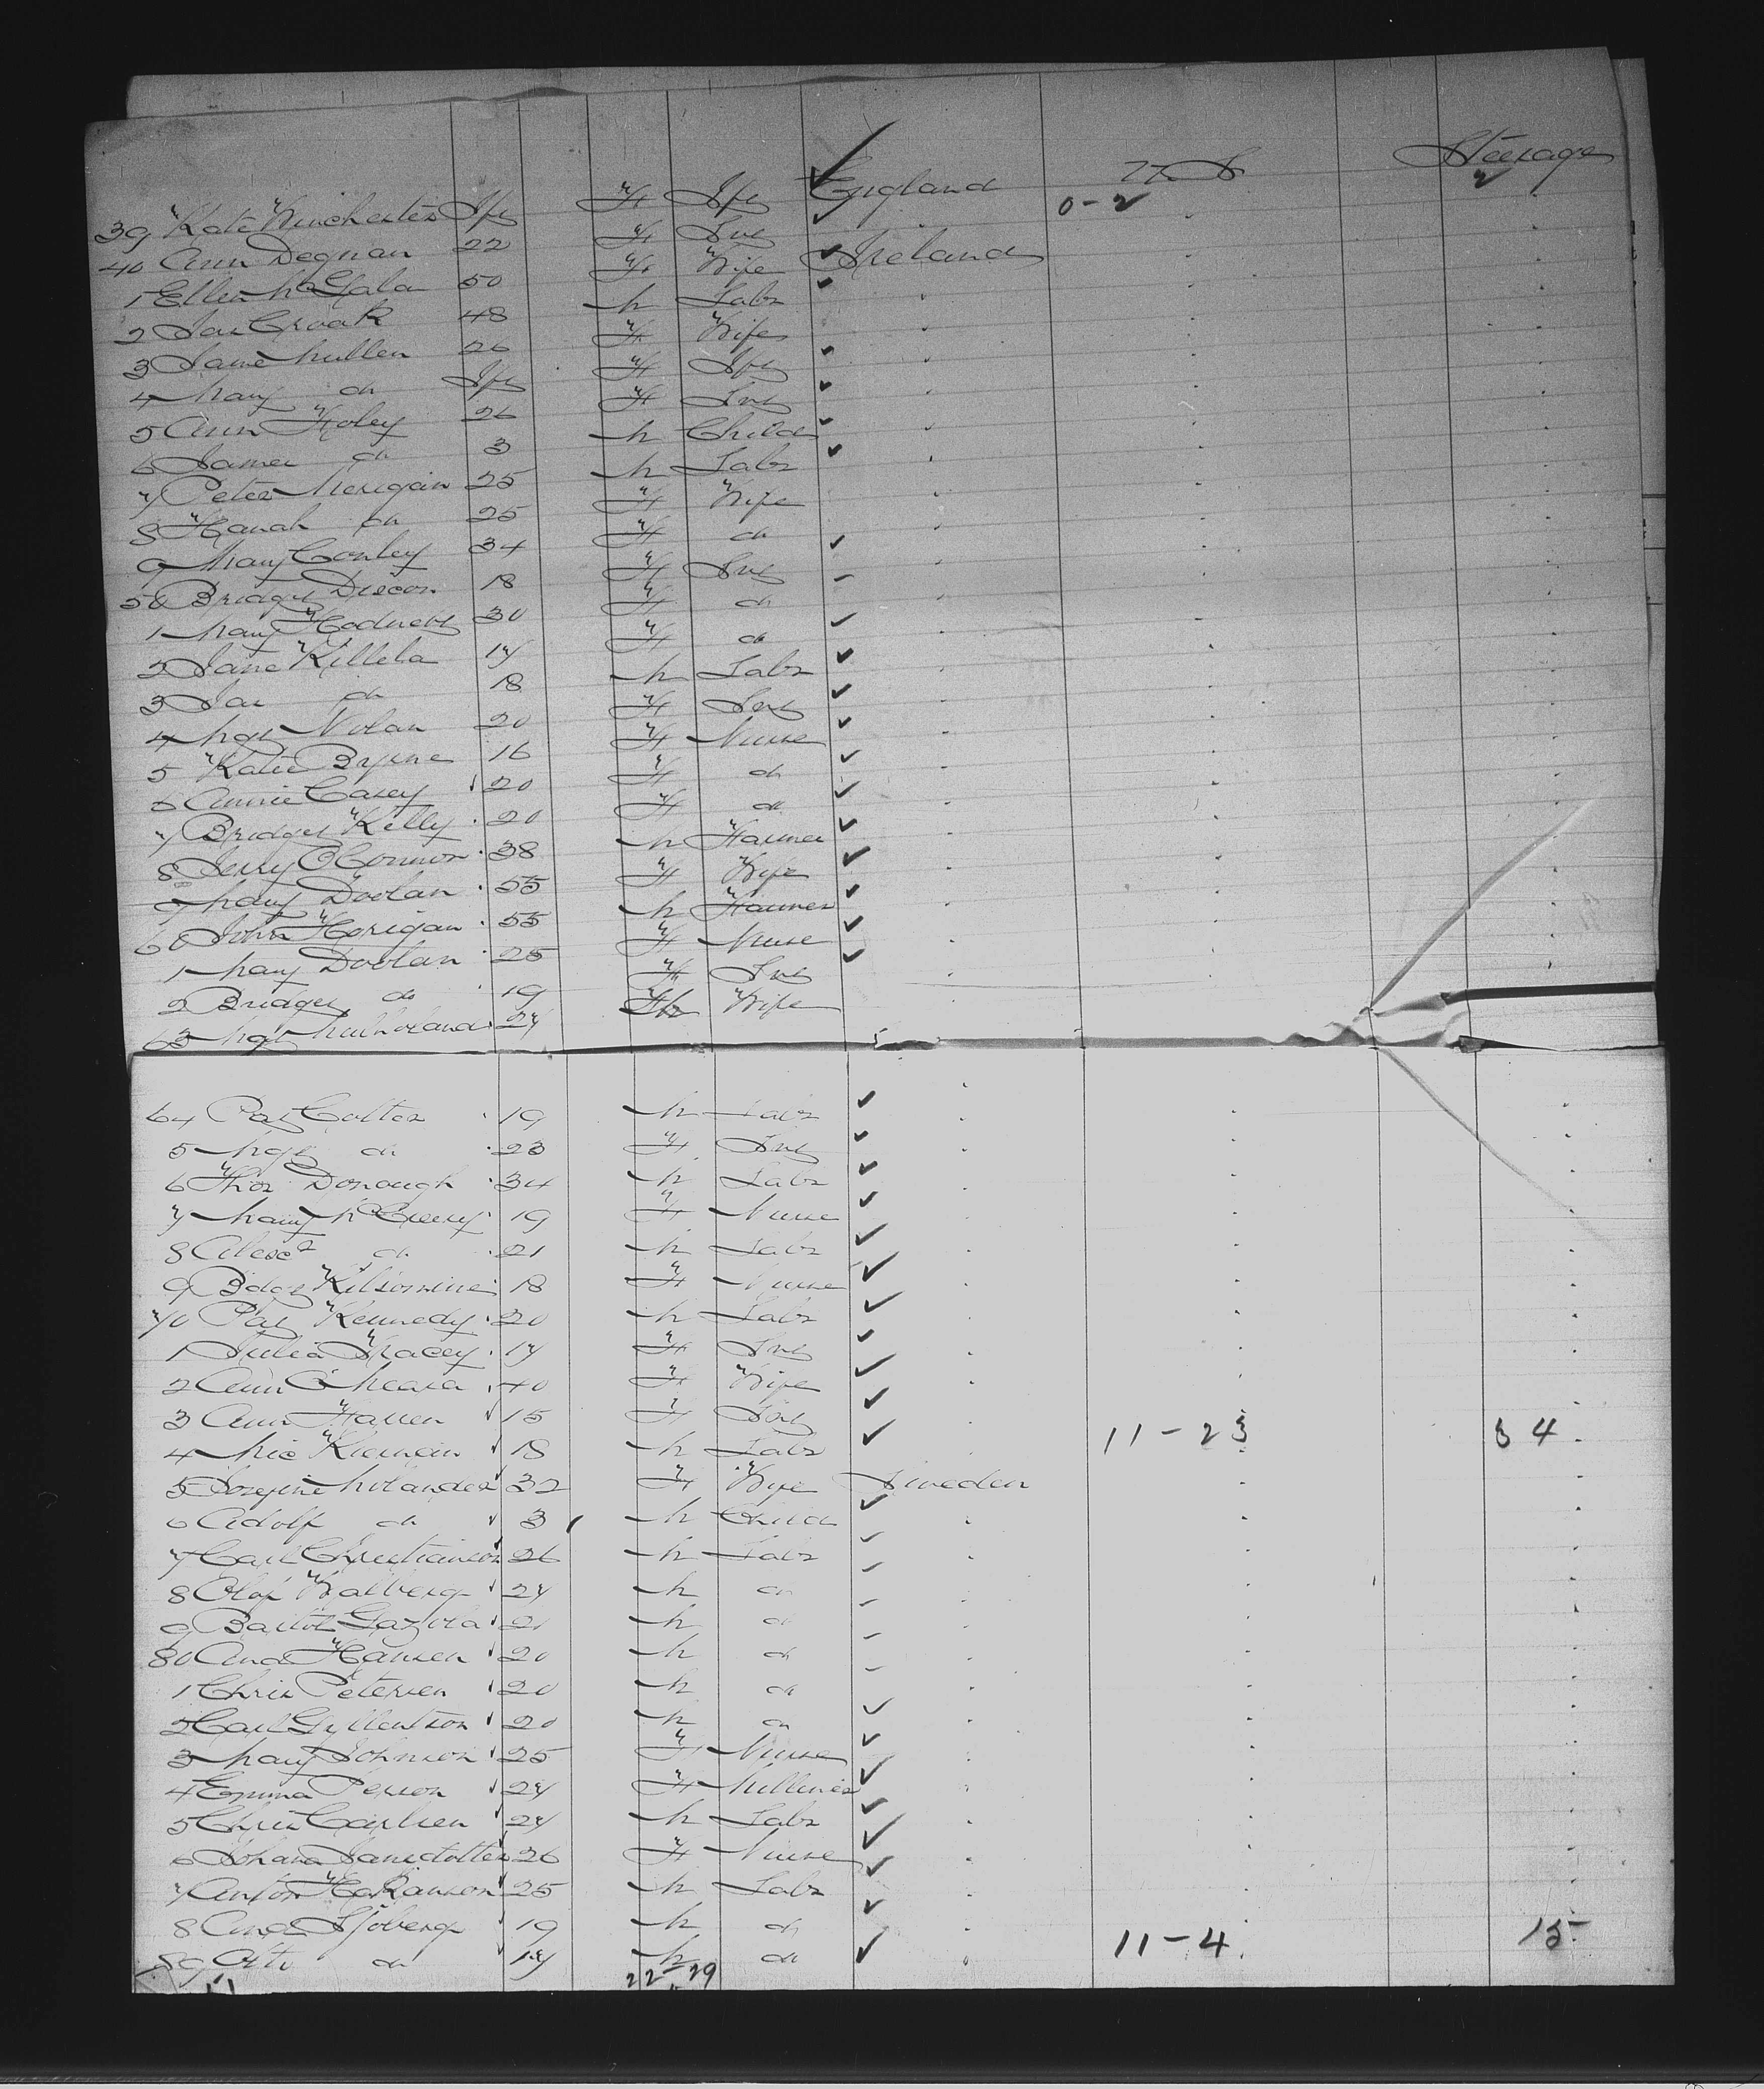 39 Kate Winchester Spr F Spr England U. S Steerage
40 Ann Degnan 22 F Svt 0-2 2
1 Ellen McGala 50 F Wife Ireland
2 Jas Croak 48 M Labr
3 Jane Mullen 26 F Wife
4 Mary do Spr F Spr
5 Ann Foley 26 F Svt
6 James do 3 M Child
7 Peter Merigan 25 M Labr
8 Hanah do 25 F Wife
9 Mary Conley 34 F do
50 Bridget 18 F Svt
1 Mary 30 F do
2 Jane Killela 17 F do
3 Jas do 18 M Labr
4 Mgt Nolan 20 F Svt
5 Katie Byrne 16 F Nurse
6 Annie Casey 20 F do
7 Bridget Kelly 20 F do
8 Jerry O'Connor 38 M Farmer
9 Mary Doolan 55 F Wife
60 John Horigan 55 M Farmer
1 Mary Doolan 25 F Nurse
2 Bridget do 19 F Svt
63 Mgt Mulholand 27 F Wife
64 Pat Colter 19 M Labr
5 Mgt do 23 F Svt
6 Thos Donough 34 M Labr
7 Mary 19 F Nurse
8 Alexr do 21 M Labr
9 Bdgt 18 F Nurse
70 Pat Kennedy 20 M Labr
1 Julia Tracey 17 F Svt
2 Ann O'Meara 40 F Wife
3 Ann 15 F Svt
4 Mic 18 M Labr 11-23 34
5 Josefine Molander 32 F Wife Sweden
6 Adolf do 3 M Child
7 Carl Christianson 26 M Labr
8 Olof Walberg 27 M do
9 21 M do
80 And Hansen 20 M do
1 Chris Petersen 20 M do
2 Carl Gyllenson 20 M do
3 Mary Johnson 25 F Nurse
4 Emma Person 27 F Milliner
5 Chris Carlsen 27 M Labr
6 Johana Janesdotter 26 F Nurse
7 Anton Hakanson 25 M Labr
8 And Sjoberg 19 M do
89 do 17 M do 11-4 15
22-29